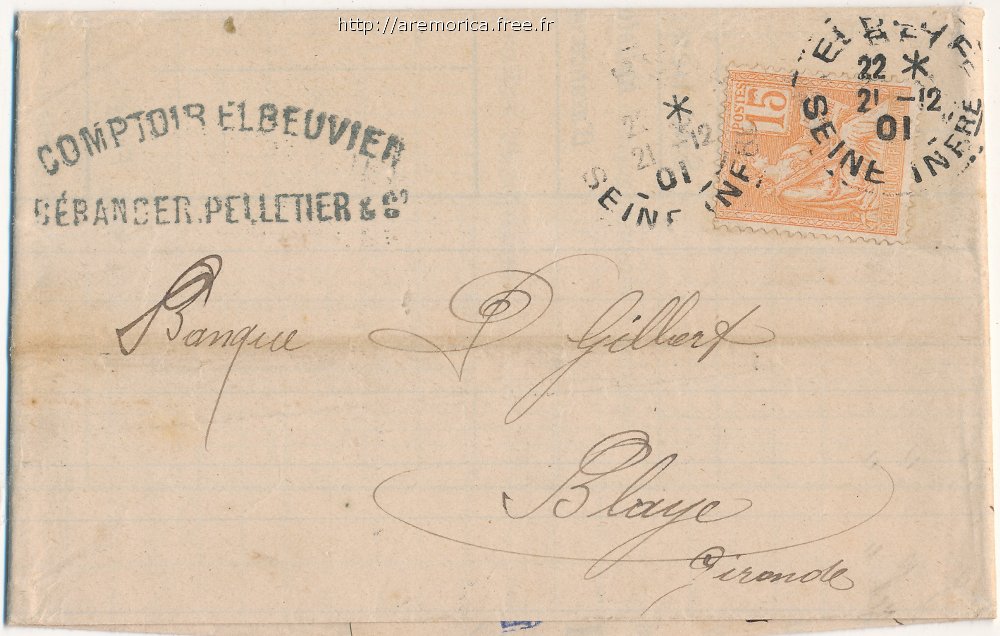 http://aremorica.free.fr
COMPTOIR ELBEUVIER
BÉRANGER. PELLETIER & Cⁱᵉ
POSTES
15
ELBEUF
22 *
21 -12
01
SEINE INFRE
*
21 -12
01
SEINE INFRE
Banque P Gilbert
Blaye
Gironde